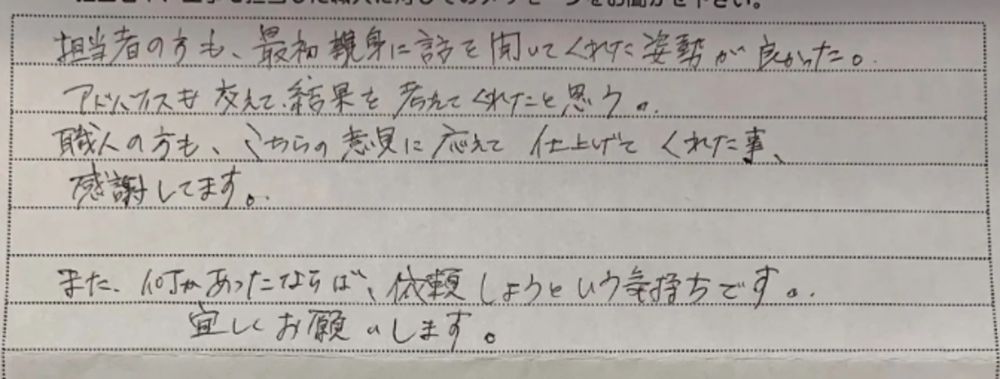 工事を担当した職人に対してのメッセージをお聞かせ下さい。
担当者の方も、最初親身に話を聞いてくれた姿勢が良かった。
アドバイスも交えて、結果を考えてくれたと思う。
職人の方も、こちらの意見に応えて仕上げてくれた事、
感謝してます。
また、何かあったならば、依頼しようという気持ちです。
宜しくお願いします。